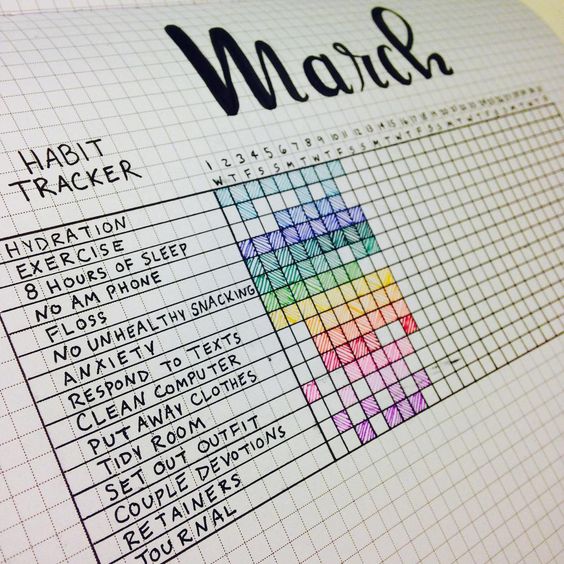 March
HABIT
TRACKER
1 2 3 4 5 6 7 8 9 10 11 12 13
W T F S S M T W T F S S M T W T F S S
HYDRATION
EXERCISE
8 HOURS OF SLEEP
NO AM PHONE
FLOSS
NO UNHEALTHY SNACKING
ANXIETY
RESPOND TO TEXTS
CLEAN COMPUTER
PUT AWAY CLOTHES
TIDY ROOM
SET OUT OUTFIT
COUPLE DEVOTIONS
RETAINERS
JOURNAL